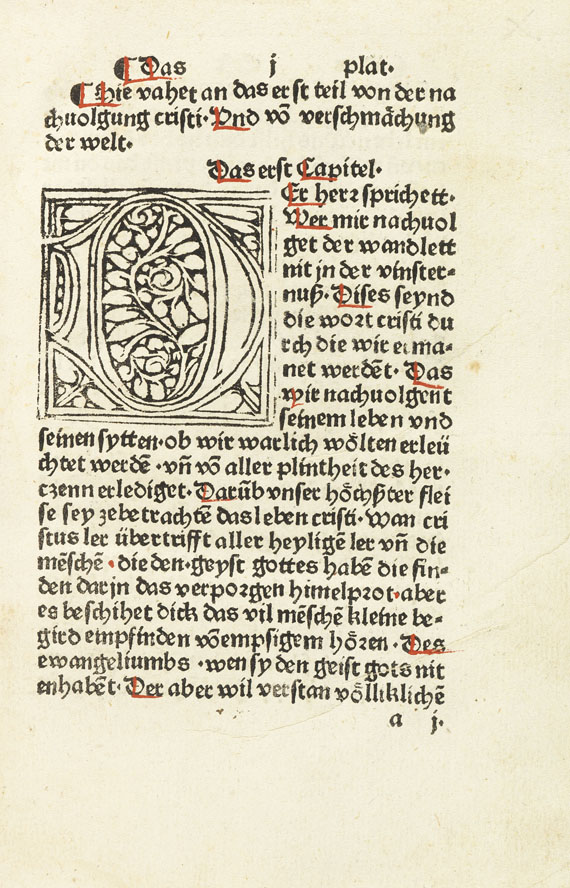 Das j plat·
Hie vahet an das erst teil von der na
chuolgung cristi· Vnd võ verschmåchung
der welt·
Das erst Capitel·
DEr herr sprichett·
Wer mir nachuol
get der wandlett
nit jn der vinster-
nuß· Dises seynd
die wort cristi du
rch die wir erma-
net werdẽt· Das
wir nachuolgent
seinem leben vnd
seinen sytten· ob wir warlich wôlten erleü
chtet werdẽ · vñ võ aller plintheit des her·
czenn erlediget· Darũb vnser hôchster flei
se sey zebetrachtẽ das leben cristi· Wan cri
stus ler übertrifft aller heyligẽ ler vñ die
mẽschẽ · die den· geyst gottes habẽ die fin-
den darjn das verporgen himelprot· aber
es beschihet dick das vil mẽschẽ kleine be-
gird empfinden võempsigem hôren · Des
ewangeliumbs · wen sy den geist gots nit
enhabẽt· Der aber wil verstan vôlliklichẽ
a j·